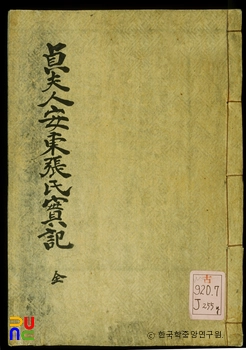 貞夫人安東張氏實記
全
古
920.7
J255
ⓒ 한국학중앙연구원